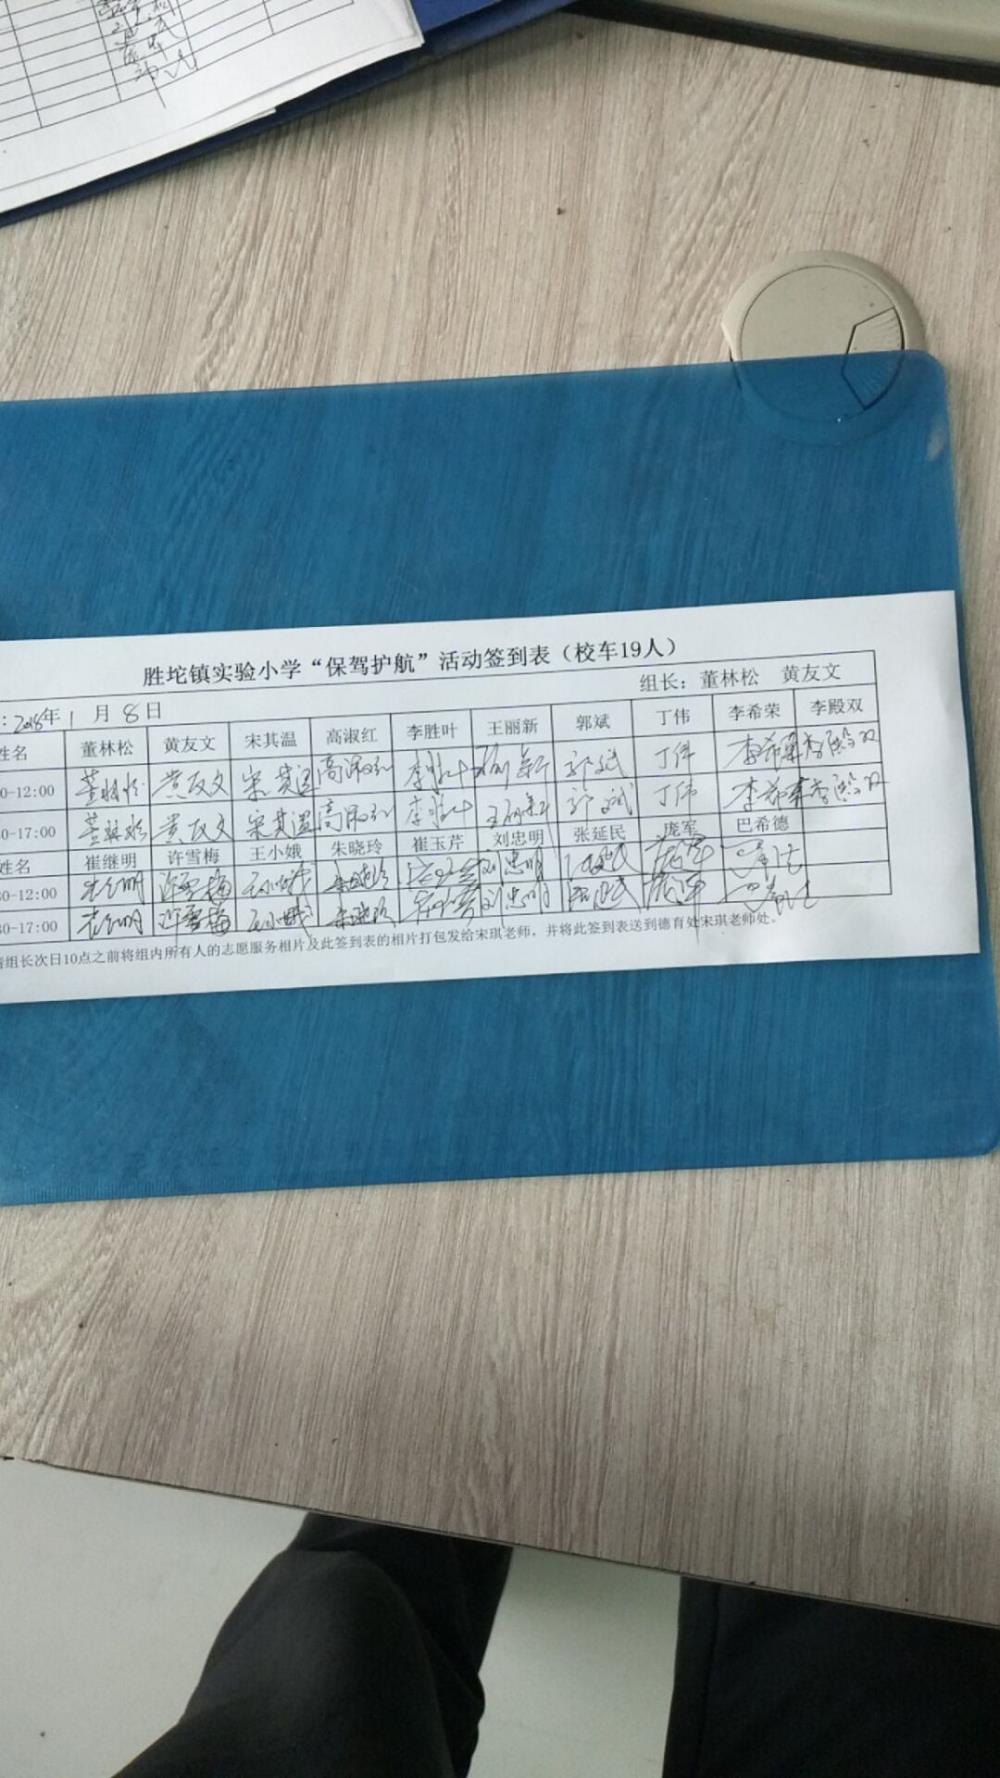 胜坨镇实验小学“保驾护航”活动签到表（校车19人）
组长：董林松 黄友文
：2018年1月8日
姓名 董林松 黄友文 宋其温 高淑红 李胜叶 王丽新 郭斌 丁伟 李希荣 李殿双
0-12:00 董林松 黄友文 宋其温 高淑红 李胜叶 郭斌 丁伟 李希荣 李殿双
0-17:00 董林松 黄友文 宋其温 高淑红 李胜叶 王丽新 郭斌 丁伟 李希荣 李殿双
姓名 崔继明 许雪梅 王小娥 朱晓玲 崔玉芹 刘忠明 张延民 庞军 巴希德
30-12:00 许雪梅 王小娥 朱晓玲 刘忠明 庞军
30-17:00 许雪梅 王小娥 朱晓玲 刘忠明 庞军
请组长次日10点之前将组内所有人的志愿服务相片及此签到表的相片打包发给宋琪老师，并将此签到表送到德育处宋琪老师处。